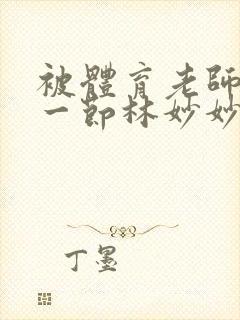 被體育老師
一節林妙妙
丁墨